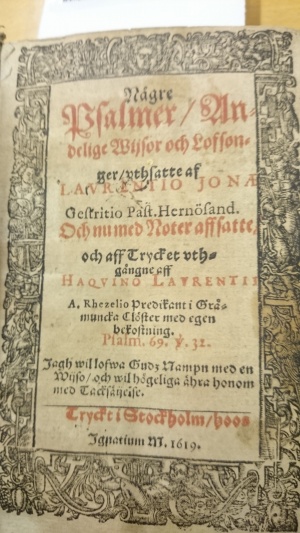 Någre
Psalmer / An-
delige Wijsor och Loffson-
ger / vthsatte af
LAVRENTIO JONÆ
Gestritio Past. Hernösand.
Och nu med Noter affsatte,
och aff Trycket vth-
gångne aff
HAQVINO LAVRENTII
A. Rhezelio Predikant i Grå-
muncka Clöster med egen
bekostning.
Psalm. 69. v. 32.
Jagh wil lofwa Gudz Nampn med en
Wijso / och wil högeliga ähra honom
med Tacksäijelse.
Tryckt i Stockholm / hoos
Ignatium M. 1619.